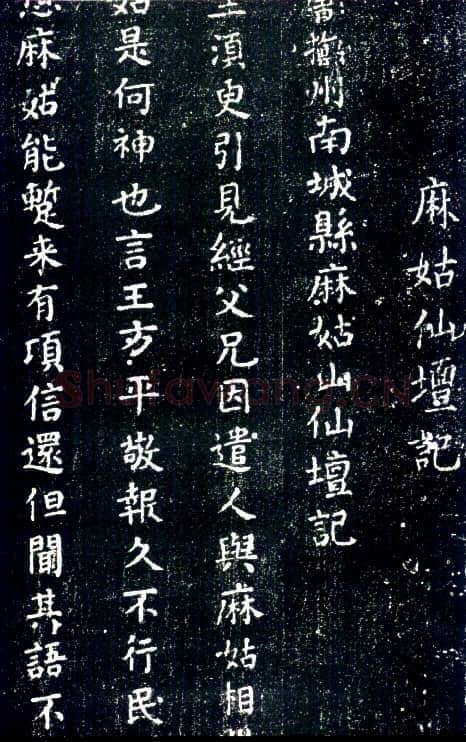 麻姑仙壇記
撫州南城縣麻姑山仙壇記
須臾引見經父兄因遣人與麻姑相
是何神也言王方平敬報久不行民
麻姑能蹔来有頃信還但聞其語不
Shufawang.CN